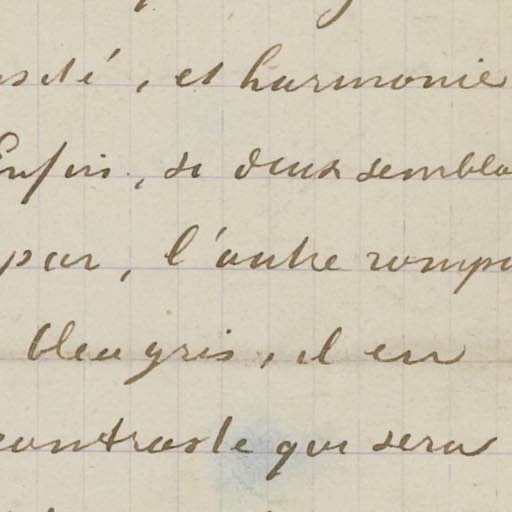 , et harmonie
Enfin, si deux sembla
pur, l'autre rompu
bleu gris, il en
contraste qui sera